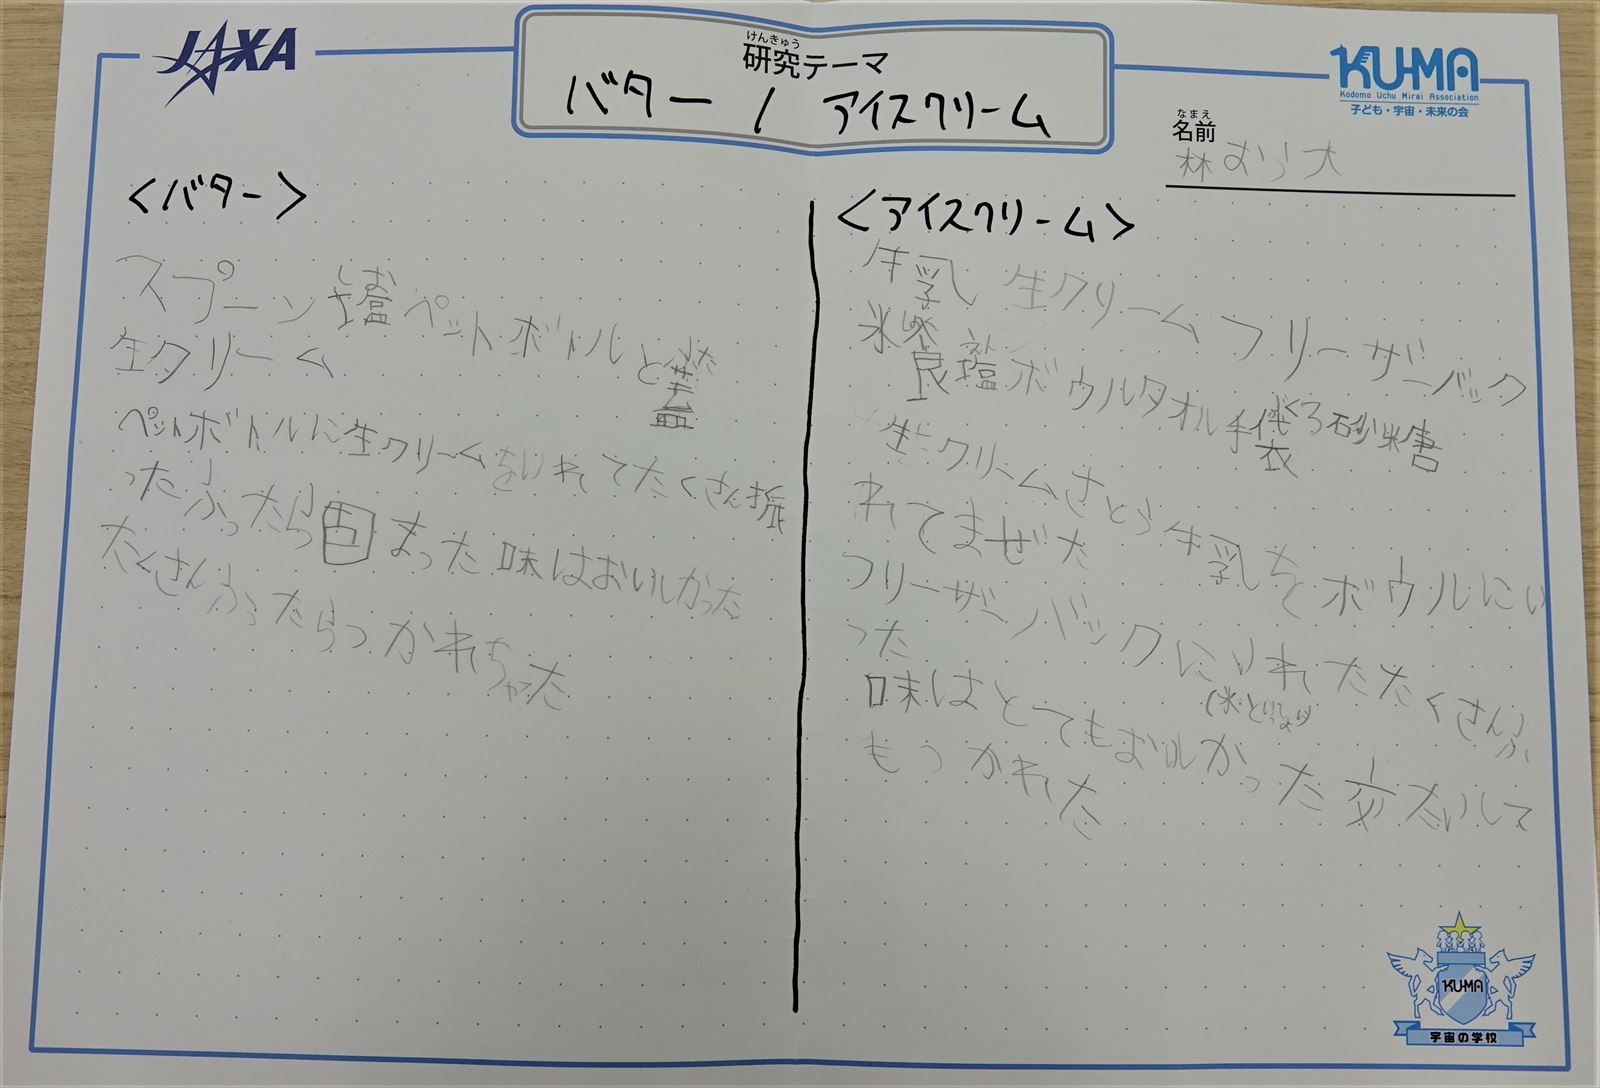 JAXA
けんきゅう
研究テーマ
バター / アイスクリーム
KU-MA
Kodomo Uchu Mirai Association
子ども・宇宙・未来の会
なまえ
名前
林 むう大
<バター>
しお
スプーン 塩 ペットボトルと蓋
ふた
生クリーム
ペットボトルに生クリームをいれてたくさん振
ったふったら固まった 味はおいしかった
たくさんふったらつかれちゃった
<アイスクリーム>
牛乳 生クリーム フリーザーバック
氷 食塩 ボウル タオル 手袋 砂糖
えん
ぶくろ
生クリームさとう牛乳をボウルにい
れてまぜた
フリーザーバックにいれたたくさんふ
った
(氷といっしょに)
味はとてもおいしかった 交たいして
もつかれた
KU-MA
宇宙の学校